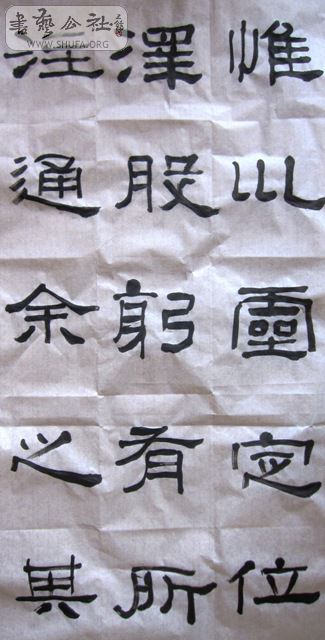 書藝公社
WWW.SHUFA.ORG
惟巛靈定位
澤股躬有所
注通余之其